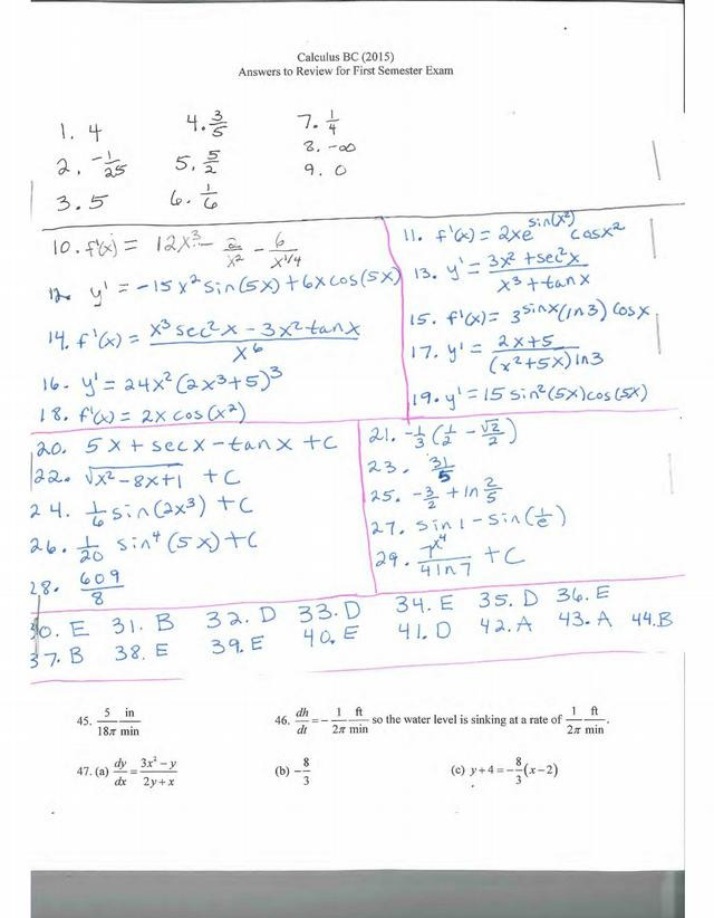 Calculus BC (2015)
Answers to Review for First Semester Exam
1. 4
4. 3/5
7. 1/4
2. -1/25
5. 5/2
8. -∞
3. 5
6. 1/6
9. 0
10. f'(x) = 12x³ - 2/x² - 6/x^(1/4)
11. f'(x) = 2xe^(sin(x²)) cosx²
12. y' = -15x² sin(5x) + 6x cos(5x)
13. y' = (3x² + sec²x)/(x³ + tanx)
14. f'(x) = (x³ sec²x - 3x² tanx)/x⁶
15. f'(x) = 3^(sinx) (ln3) cosx
16. y' = 24x² (2x³+5)³
17. y' = (2x+5)/((x²+5x) ln3)
18. f'(x) = 2x cos(x²)
19. y' = 15 sin²(5x) cos(5x)
20. 5x + secx - tanx + C
21. -1/3 (1/2 - √2/2)
22. √(x²-8x+1) + C
23. 31/5
24. 1/6 sin(2x³) + C
25. -3/2 + ln 2/5
26. 1/20 sin⁴(5x) + C
27. sin1 - sin(1/e)
28. 609/8
29. 7^(x⁴)/(4ln7) + C
30. E 31. B 32. D 33. D 34. E 35. D 36. E
37. B 38. E 39. E 40. E 41. D 42. A 43. A 44. B
45. 5/18π in/min
46. dh/dt = -1/2π ft/min so the water level is sinking at a rate of 1/2π ft/min.
47. (a) dy/dx = (3x² - y)/(2y + x)
(b) -8/3
(c) y + 4 = -8/3 (x - 2)